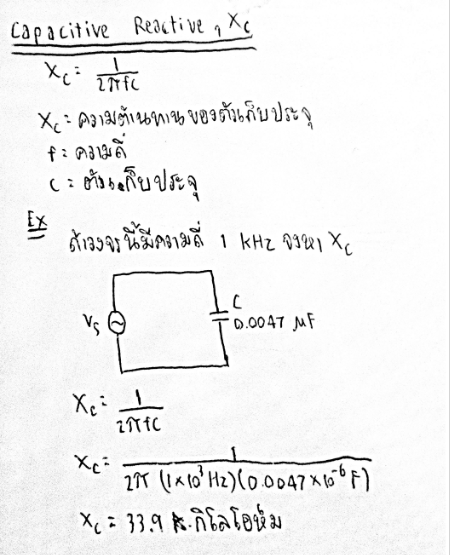 Capacitive Reactive, Xc
Xc = 1/2πfc
Xc = ความต้านทานของตัวเก็บประจุ
f = ความถี่
C = ตัวเก็บประจุ
Ex
ถ้าวงจรนี้มีความถี่ 1 kHz จงหา Xc
Vs
C
0.0047 μF
Xc = 1/2πfc
Xc = 1/2π (1×10³Hz)(0.0047×10⁻⁶F)
Xc = 33.9 กิโลโอห์ม